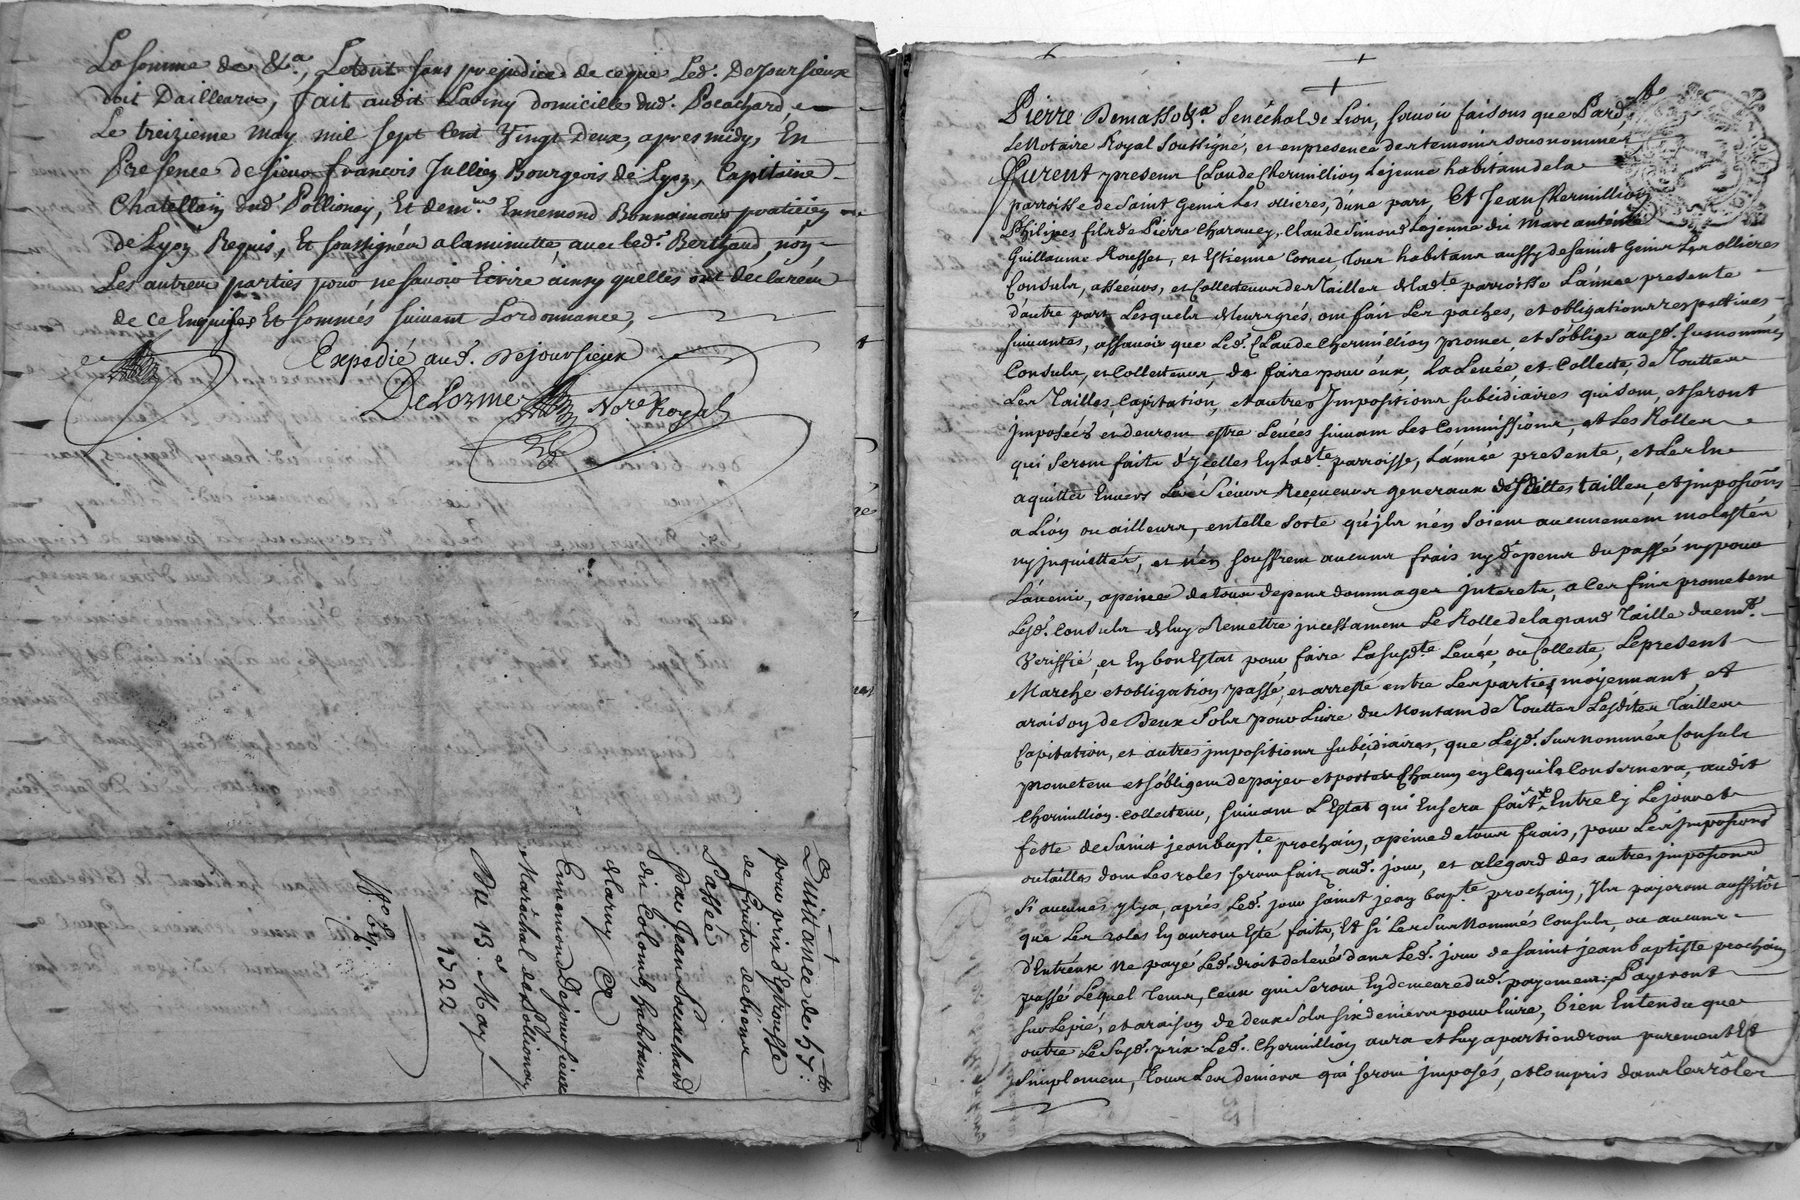 La somme de &a, Letout sans prejudice de ceque Led. Dejoursieux
doit Dailleurs, fait audit Larny domicille dud. Pocachard
Le treizieme may mil sept Cent Vingt Deux, apres midy, En
Presence de sieur françois Jullien Bourgeois de Lyon, Capitaine
Chatellain dud Pollionay, Et de mre Ennemond Bonnamour praticien
de Lyon Requis, Et soussignéz alaminutte avec led. Berthaud, non
Les autres parties pour ne savoir Ecrire ainsy quelles ont declaréez
de ce Enquises Et sommés suivant Lordonnance,
Expedié aud. Dejoursieux
DeLorme Nore Royal
Quittance de 57tt:
pour prix d'Estrousse
de fruits de biens
Passée
par Jean
du Colomb habitant
Ennemond Dejoursieux
Maréchal de Pollionay
Du 13e May
1722
Pierre Demasso &a Sénéchal de Lion, savoir faisons que Pard.
Le Notaire Royal Soussigné, et en presence des temoins sousnommez
furent presens Claude Chermillion Lejeune habitant de la
parroisse de Saint Genis Les ollieres, d'une part, Et Jean Chermillion
Philipes fils de Pierre Charavey, Claude Simond Lejeune dit Marc antoine
Guillaume Rousset, et Estienne Cornet, Tous habitans aussy de Saint Genis Les ollieres
Consuls, asseeurs, et Collecteurs des Tailles de lade. parroisse L'année presente
d'autre part Lesquels de leurs grés, ont fait Les paches, et obligations respectives
suivantes, assavoir que Led. Claude Chermillion promet et s'oblige ausd. susnommés
Consuls, et Collecteurs, de faire pour eux, La Levée et Collecte, de Toutes
Les Tailles, Capitation, et autres Impositions subcidiaires qui sont, et seront
Imposées et devront estre Levées suivant Les Commissions, et Les Rolles
qui seront faits d'ycelles En Lade. parroisse, L'année presente, et Les En
aquitter Envers Les Sieurs Receveurs generaux desdittes tailles, et imposions
a Lion ou ailleurs, en telle sorte qu'jls n'en soient aucunement molestés
ny jnquiettés, et n'en souffrent aucuns frais ny depens du passé ny pour
L'avenir, a peine de tous depens dommages Interets, a Les fins prometent
Lesd. Consuls de luy Remettre jncessament Le Rolle de la grand Taille duemt.
Veriffié, et En bon Estat pour faire La susde. Levée, ou Collecte, Le present
Marché et obligation passé, et arresté entre Les parties moyennant et
a raison de Deux Sols pour Livre du Montant de Touttes Lesdites Tailles
Capitation, et autres jmpositions subcidiaires, que Lesd. Surnommés Consuls
prometent et s'obligent de payer et porter Chacun en Ce qui Le Consernera, audit
Chermillion Collecteur, suivant L'Estat qui En sera fait Entre Cy Le jour et
feste de Saint jean bapte. prochain, a peine de tous frais, pour Les Imposions
ou tailles dont Les roles seront faits aud. jour, et a legard des autres jmposions
si aucunes y en a, aprés Led. jour saint jean bapte. prochain, jls payeront aussitôt
que Les roles En auront Esté faits, Et si Les Surnommés Consuls, ou aucuns
d'Entreux ne payé Led. droit de levée dans Led. jour de Saint jean baptiste prochain
passé Lequel Tems, Ceux qui seront En demeure dud. payement, Payeront
sur Le pié, et a raison de deux Sols six deniers pour livre, bien Entendu que
outre Le susd. prix Led. Chermillion aura et Luy apartiendront purement Et
simplement, Tous Les deniers qui seront jmposés, et Compris dans Les rôles